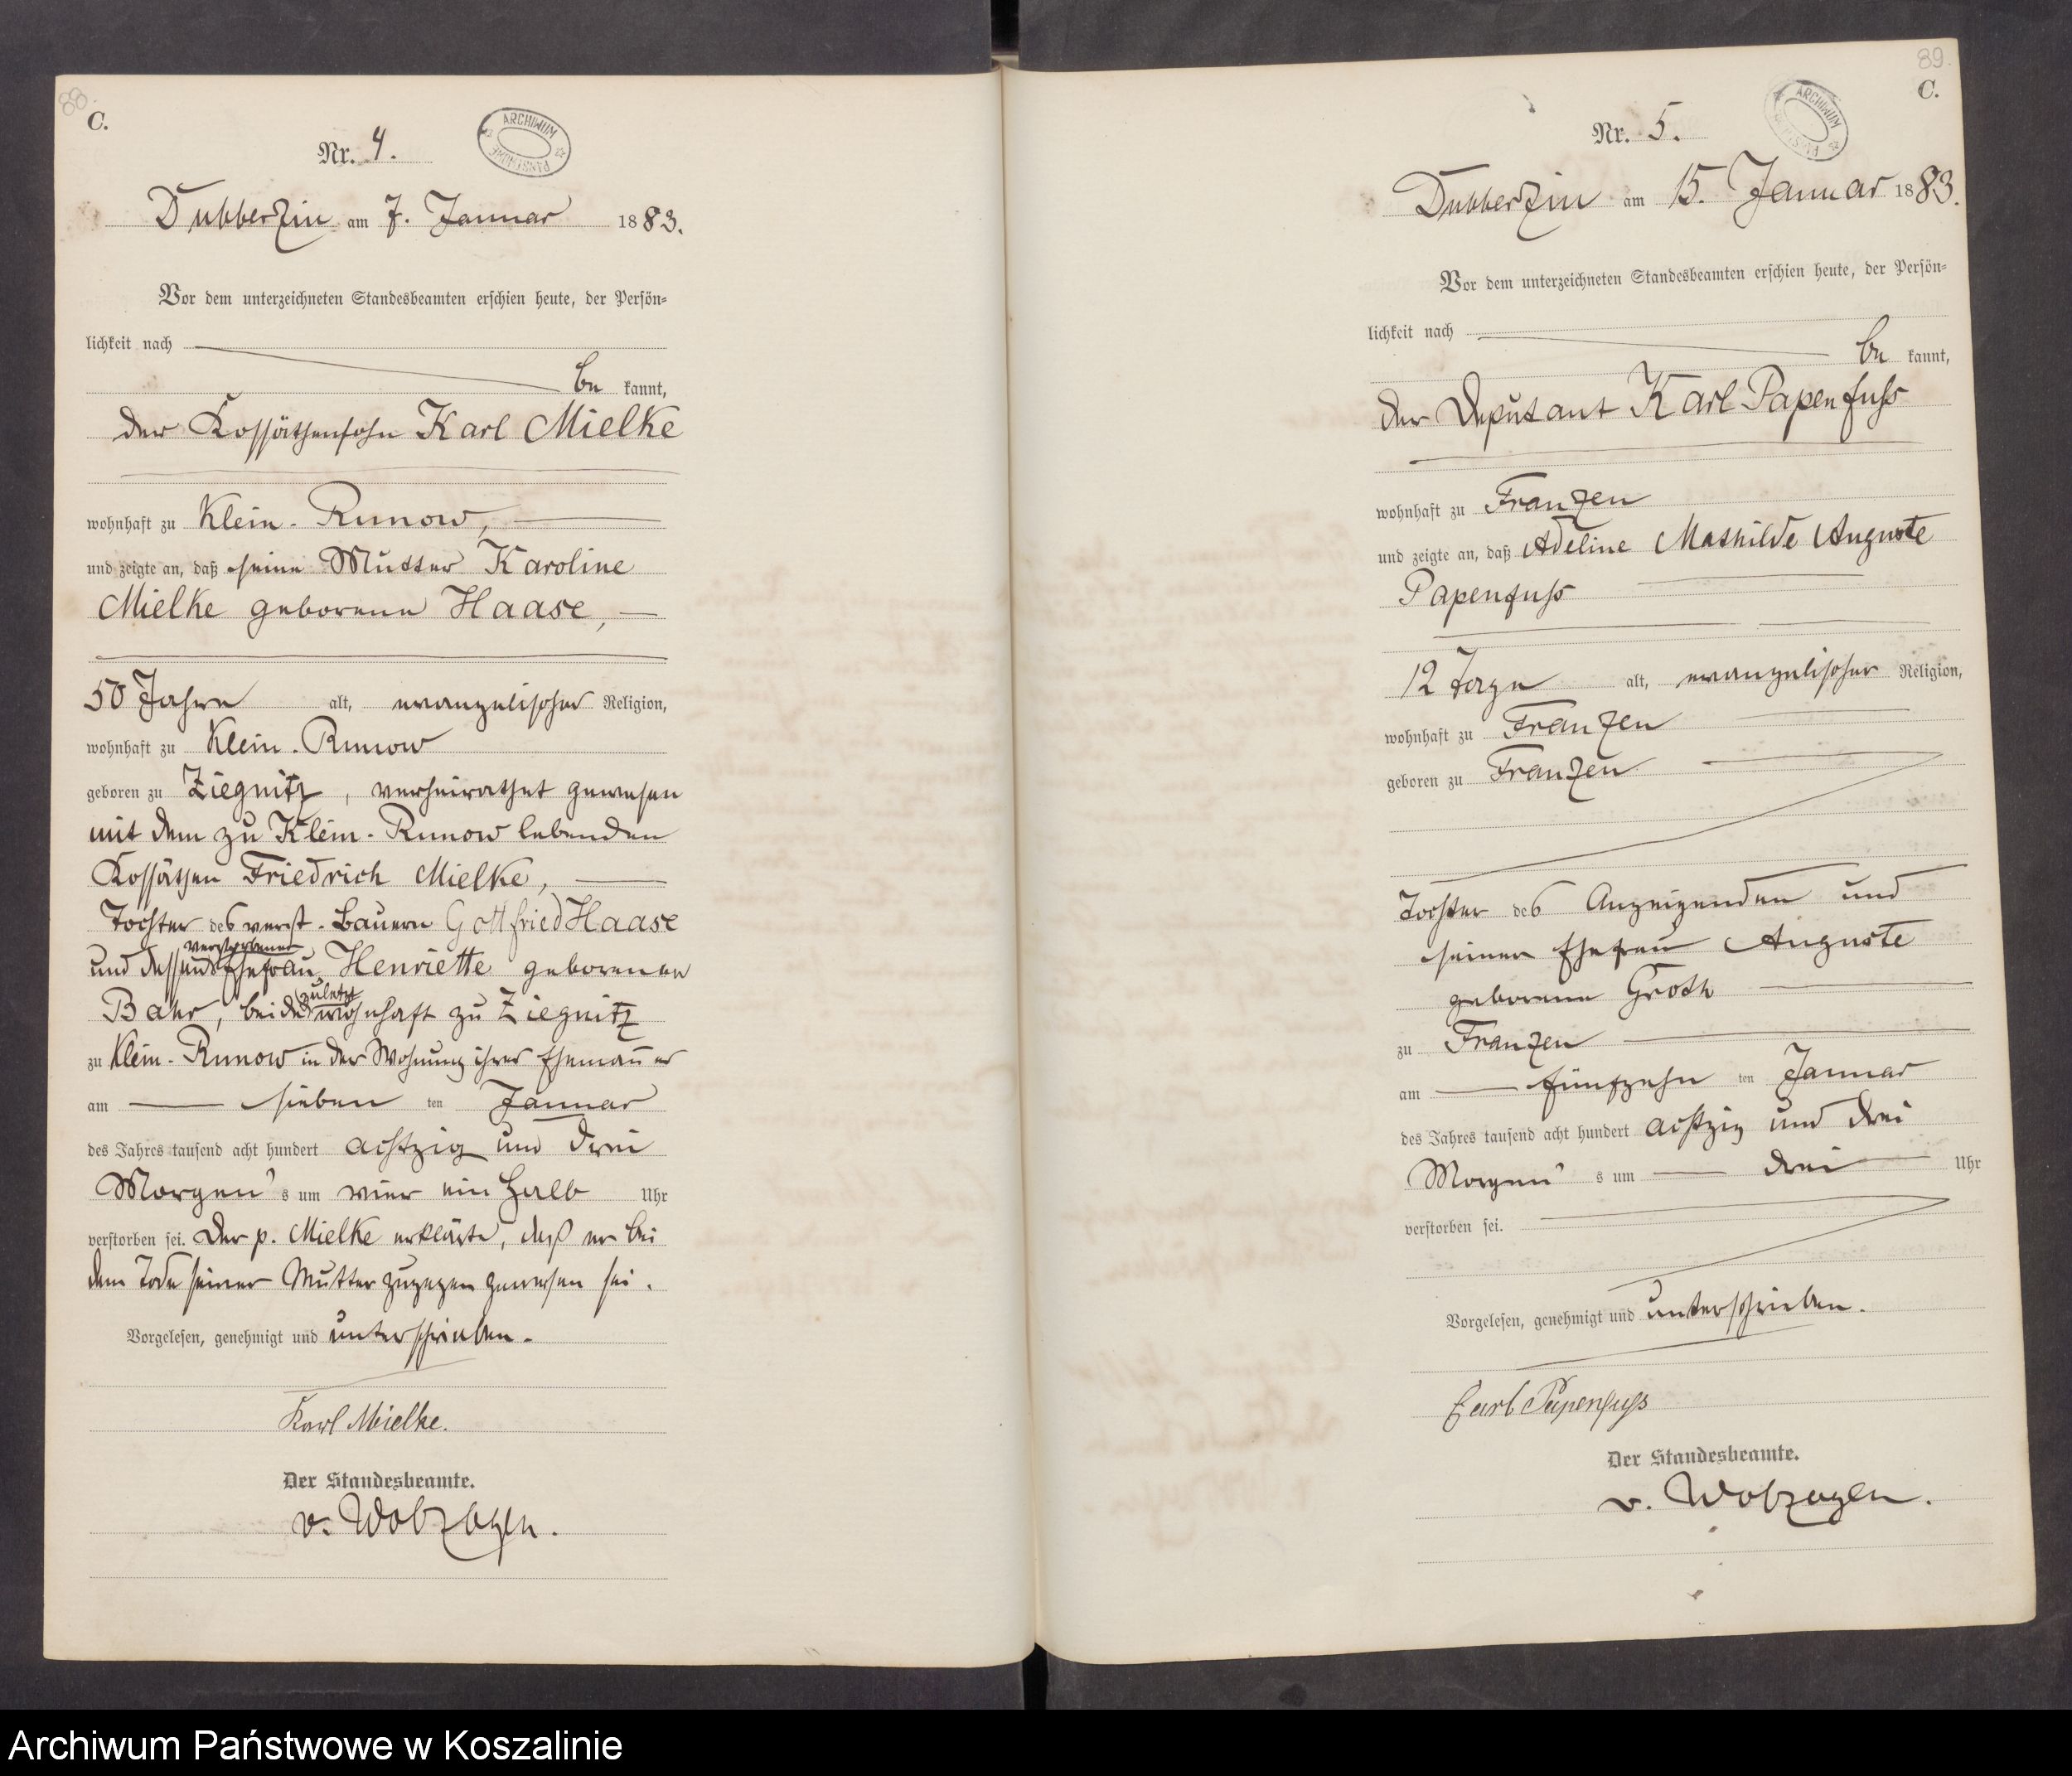 88.
C.
Nr. 4.
ARCHIWUM PAŃSTWOWE
Dubberzin am 7. Januar 1883.
Vor dem unterzeichneten Standesbeamten erschien heute, der Persön-
lichkeit nach
be kannt,
der Kossäthensohn Karl Mielke
wohnhaft zu Klein-Runow,
und zeigte an, daß seine Mutter Karoline
Mielke geborene Haase,
50 Jahre alt, evangelischer Religion,
wohnhaft zu Klein-Runow
geboren zu Ziegnitz, verheirathet gewesen
mit dem zu Klein-Runow lebenden
Kossäthen Friedrich Mielke,
Tochter des verst. Bauern Gottfried Haase
verstorbener
und dessen Ehefrau Henriette geborenen
zuletzt
Bahr, beide wohnhaft zu Ziegnitz
zu Klein-Runow in der Wohnung ihres Ehemannes
am sieben ten Januar
des Jahres tausend acht hundert achtzig und drei
Morgen's um vier ein halb Uhr
verstorben sei. Der p. Mielke erklärte, daß er bei
dem Tode seiner Mutter zugegen gewesen sei.
Vorgelesen, genehmigt und unterschrieben.
Karl Mielke.
Der Standesbeamte.
v. Wolzogen.
89.
C.
Nr. 5.
ARCHIWUM
Dubberzin am 15. Januar 1883.
Vor dem unterzeichneten Standesbeamten erschien heute, der Persön-
lichkeit nach
be kannt,
der Deputant Karl Papenfuss
wohnhaft zu Franzen
und zeigte an, daß Adeline Mathilde Auguste
Papenfuss
12 Tage alt, evangelischer Religion,
wohnhaft zu Franzen
geboren zu Franzen
Tochter des Anzeigenden und
seiner Ehefrau Auguste
geborene Groth
zu Franzen
am fünfzehn ten Januar
des Jahres tausend acht hundert achtzig und drei
Morgen' s um drei Uhr
verstorben sei.
Vorgelesen, genehmigt und unterschrieben.
Carl Papenfuss
Der Standesbeamte.
v. Wolzogen.
Archiwum Państwowe w Koszalinie